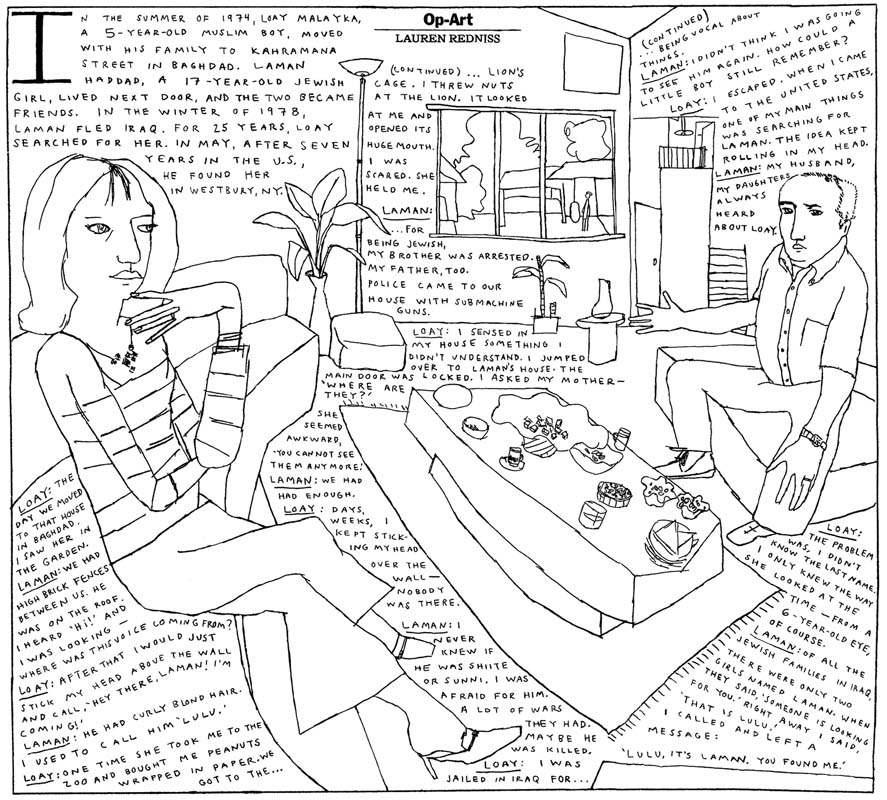 Op-Art
LAUREN REDNISS
IN THE SUMMER OF 1974, LOAY MALAYKA,
A 5-YEAR-OLD MUSLIM BOY, MOVED
WITH HIS FAMILY TO KAHRAMANA
STREET IN BAGHDAD. LAMAN
HADDAD, A 17-YEAR-OLD JEWISH
GIRL, LIVED NEXT DOOR, AND THE TWO BECAME
FRIENDS. IN THE WINTER OF 1978,
LAMAN FLED IRAQ. FOR 25 YEARS, LOAY
SEARCHED FOR HER. IN MAY, AFTER SEVEN
YEARS IN THE U.S.,
HE FOUND HER
IN WESTBURY, N.Y.
LOAY: THE
DAY WE MOVED
TO THAT HOUSE
IN BAGHDAD.
I SAW HER IN
THE GARDEN.
LAMAN: WE HAD
HIGH BRICK FENCES
BETWEEN US. HE
WAS ON THE ROOF.
I HEARD 'HI!' AND
I WAS LOOKING —
WHERE WAS THIS VOICE COMING FROM?
LOAY: AFTER THAT I WOULD JUST
STICK MY HEAD ABOVE THE WALL
AND CALL, 'HEY THERE, LAMAN! I'M
COMING!'
LAMAN: HE HAD CURLY BLOND HAIR.
I USED TO CALL HIM 'LULU.'
LOAY: ONE TIME SHE TOOK ME TO THE
ZOO AND BOUGHT ME PEANUTS
WRAPPED IN PAPER. WE
GOT TO THE...
(CONTINUED) ... LION'S
CAGE. I THREW NUTS
AT THE LION. IT LOOKED
AT ME AND
OPENED ITS
HUGE MOUTH.
I WAS
SCARED. SHE
HELD ME.
LAMAN:
...FOR
BEING JEWISH,
MY BROTHER WAS ARRESTED.
MY FATHER, TOO.
POLICE CAME TO OUR
HOUSE WITH SUBMACHINE
GUNS.
LOAY: I SENSED IN
MY HOUSE SOMETHING I
DIDN'T UNDERSTAND. I JUMPED
OVER TO LAMAN'S HOUSE. THE
MAIN DOOR WAS LOCKED. I ASKED MY MOTHER—
'WHERE ARE
THEY?'
SHE
SEEMED
AWKWARD,
'YOU CANNOT SEE
THEM ANYMORE.'
LAMAN: WE HAD
HAD ENOUGH.
LOAY: DAYS,
WEEKS, I
KEPT STICK-
ING MY HEAD
OVER THE
WALL —
NOBODY
WAS THERE.
LAMAN: I
NEVER
KNEW IF
HE WAS SHIITE
OR SUNNI. I WAS
AFRAID FOR HIM.
A LOT OF WARS
THEY HAD.
MAYBE HE
WAS KILLED.
LOAY: I WAS
JAILED IN IRAQ FOR...
(CONTINUED)
...BEING VOCAL ABOUT
THINGS.
LAMAN: I DIDN'T THINK I WAS GOING
TO SEE HIM AGAIN. HOW COULD A
LITTLE BOY STILL REMEMBER?
LOAY: I ESCAPED. WHEN I CAME
TO THE UNITED STATES,
ONE OF MY MAIN THINGS
WAS SEARCHING FOR
LAMAN. THE IDEA KEPT
ROLLING IN MY HEAD.
LAMAN: MY HUSBAND,
MY DAUGHTERS
ALWAYS
HEARD
ABOUT LOAY.
LOAY:
THE PROBLEM
WAS, I DIDN'T
KNOW THE LAST NAME.
I ONLY KNEW THE WAY
SHE LOOKED AT THE
TIME — FROM A
6-YEAR-OLD EYE,
OF COURSE.
LAMAN: OF ALL THE
JEWISH FAMILIES IN IRAQ,
THERE WERE ONLY TWO
GIRLS NAMED LAMAN. WHEN
THEY SAID, 'SOMEONE IS LOOKING
FOR YOU,' RIGHT AWAY I SAID,
'THAT IS LULU.'
I CALLED AND LEFT A
MESSAGE:
'LULU, IT'S LAMAN. YOU FOUND ME.'